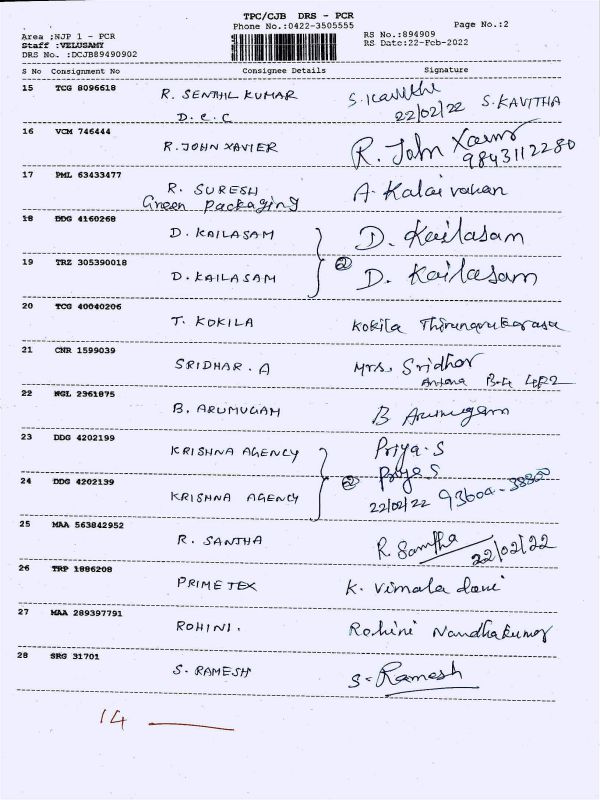 TPC/CJB DRS - PCR
Phone No.:0422-3505555 Page No.:2
Area ;NJP 1 - PCR RS No.:894909
Staff :VELUSAMY RS Date:22-Feb-2022
DRS No. :DCJB89490902
S No Consignment No Consignee Details Signature
15 TCG 8096618 R. SENTHIL KUMAR S. Kavitha
D.C.C 22/02/22 S. KAVITHA
16 VCM 746444 R. JOHN XAVIER R. John Xavier
9843112280
17 PML 63433477 R. SURESH A. Kalaivahan
Green packaging
18 DDG 4160268 D. KAILASAM D. Kailasam
19 TRZ 305390018 D. KAILASAM 2 D. Kailasam
20 TCG 40040206 T. KOKILA Kokila Thirunavukarasu
21 CNR 1599039 SRIDHAR. A Mrs. Sridhar
22 NGL 2361875 B. ARUMUGAM B Arumugam
23 DDG 4202199 KRISHNA AGENCY Priya.S
24 DDG 4202139 KRISHNA AGENCY 2 Priya S
22/02/22 93600-38800
25 MAA 563842952 R. SANTHA R. Santha
22/02/22
26 TRP 1886208 PRIMETEX K. Vimala dani
27 MAA 289397791 ROHINI. Rohini Nandhakumar
28 SRG 31701 S. RAMESH S. Ramesh
14